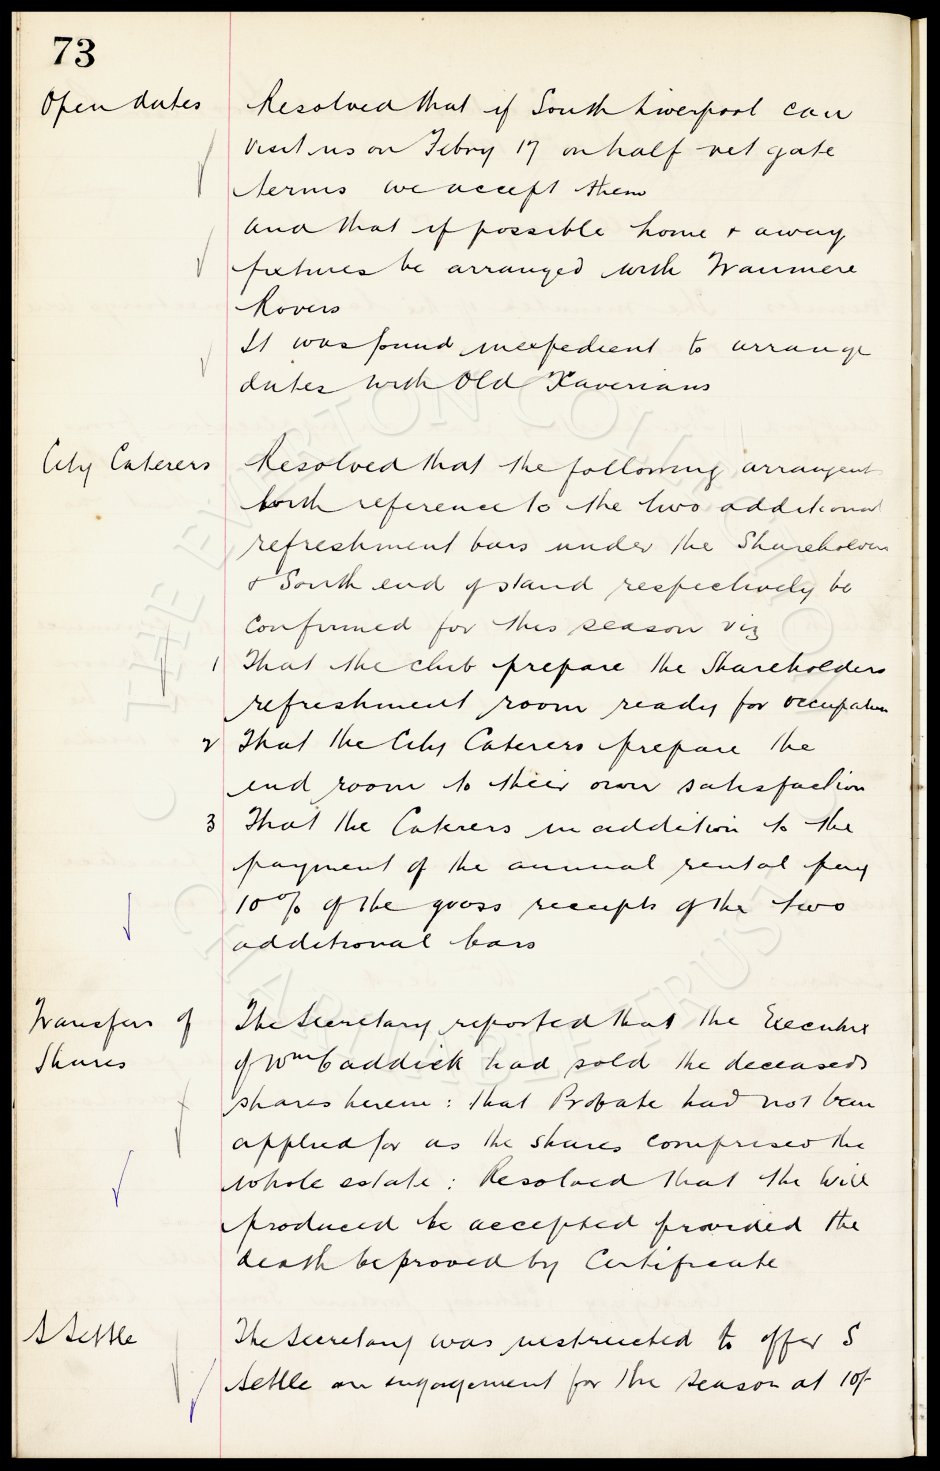 73
Open dates
Resolved that if South Liverpool can
visit us on Febry 17 on half net gate
terms we accept them
and that if possible home & away
fixtures be arranged with Tranmere
Rovers
It was found inexpedient to arrange
dates with Old Xaverians
City Caterers
Resolved that the following arrangents
with reference to the two additional
refreshment bars under the Shareholders
& South end of stand respectively be
confirmed for this season viz
1 That the club prepare the Shareholders
refreshment room ready for occupation
2 That the City Caterers prepare the
end room to their own satisfaction
3 That the Caterers in addition to the
payment of the annual rental pay
10% of the gross receipts of the two
additional bars
Transfers of
Shares
The Secretary reported that the Executrix
of Wm Caddick had sold the deceaseds
shares herein: that Probate had not been
applied for as the shares comprised the
whole estate: Resolved that the Will
produced be accepted provided the
death be proved by Certificate
S Settle
The Secretary was instructed to offer S
Settle an engagement for the season at 10/-
THE EVERTON COLLECTION
CHARITABLE TRUST